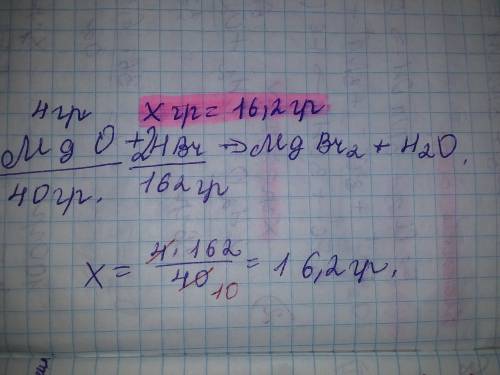 4гр x гр = 16,2гр
MgO + 2HBr → MgBr₂ + H₂O.
40гр. 162гр
x = 4 · 162 / 40 10 = 16,2гр.